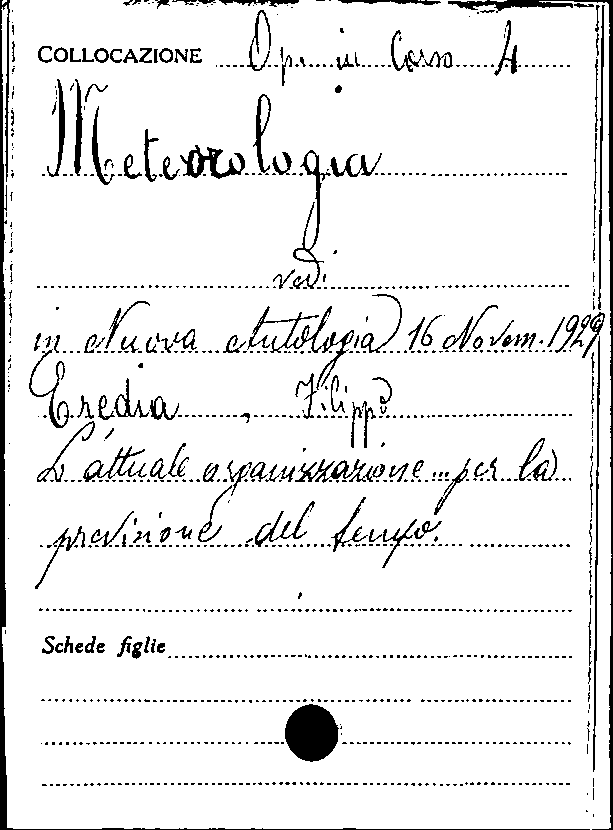 COLLOCAZIONE Op. in Corso 4
Meteorologia
vedi
in Nuova Antologia 16 Novem. 1929
Eredia, Filippo
L'attuale organizzazione ... per la
previsione del tempo.
Schede figlie